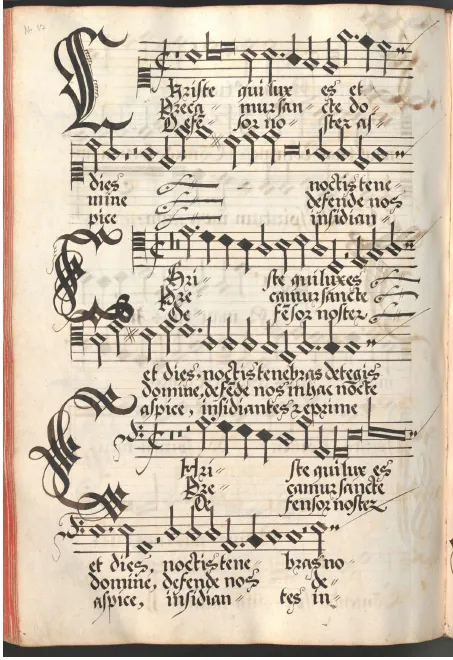 C
hriste qui lux es et
Preca mur san cte do
Defe sor no ster as
dies noctis tene
mine defende nos
pice insidian
C
Hri ste qui lux es
Pre camur sancte
De fēsor noster
et dies, noctis tenebras detegis
domine, defēde nos in hac nocte
aspice, insidiantes reprime
C
Hri ste qui lux es
Pre camur sancte
De fensor noster
et dies, noctis tene bras no
domine, defende nos de
aspice, insidian tes in